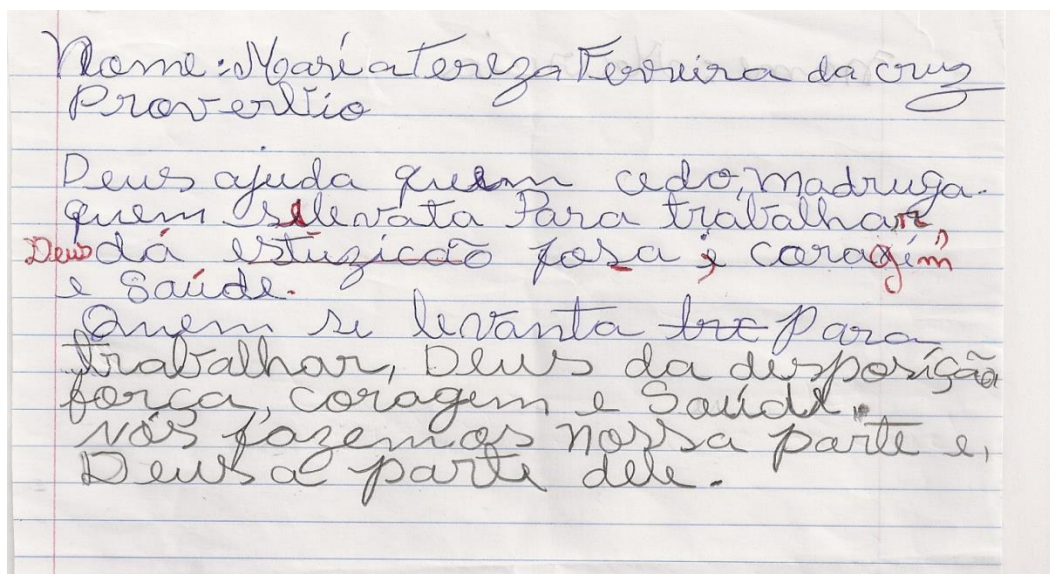 Nome: Maria Tereza Ferreira da cruz
Proverbio
Deus ajuda quem cedo, madruga.
quem se levata Para trabalhar
Deus dá estuzicão fosa, e coragém
e Saúde.
Quem se levanta tre Para
trabalhar, Deus da desposição
força, coragem e Saúde.
Nós fazemos nossa parte e,
Deus a parte dele.